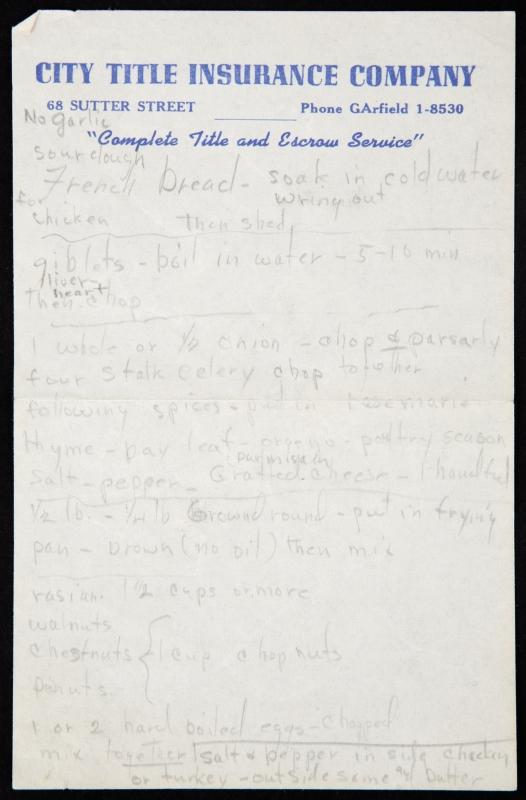 CITY TITLE INSURANCE COMPANY
68 SUTTER STREET Phone GArfield 1-8530
"Complete Title and Escrow Service"
No garlic
sourdough
French bread - soak in cold water
wring out
for
chicken then shed
giblets - boil in water - 5-10 min
liver -
heart
then chop
1 whole or 1/2 onion - chop & parsarly
four stalk celery chop together
following spices - put in
thyme - bay leaf - - poultry season
parmisain
salt - pepper - Grated cheese - 1 handful
1/2 lb. - 1/4 lb Ground round - put in frying
pan - brown (no oil) then mix
rasian. 1 1/2 cups or more
walnuts
chestnuts { 1 cup chop nuts
panuts.
1 or 2 hard boiled eggs - chopped
mix together / salt & pepper in side chicken
or turkey - outside same butter